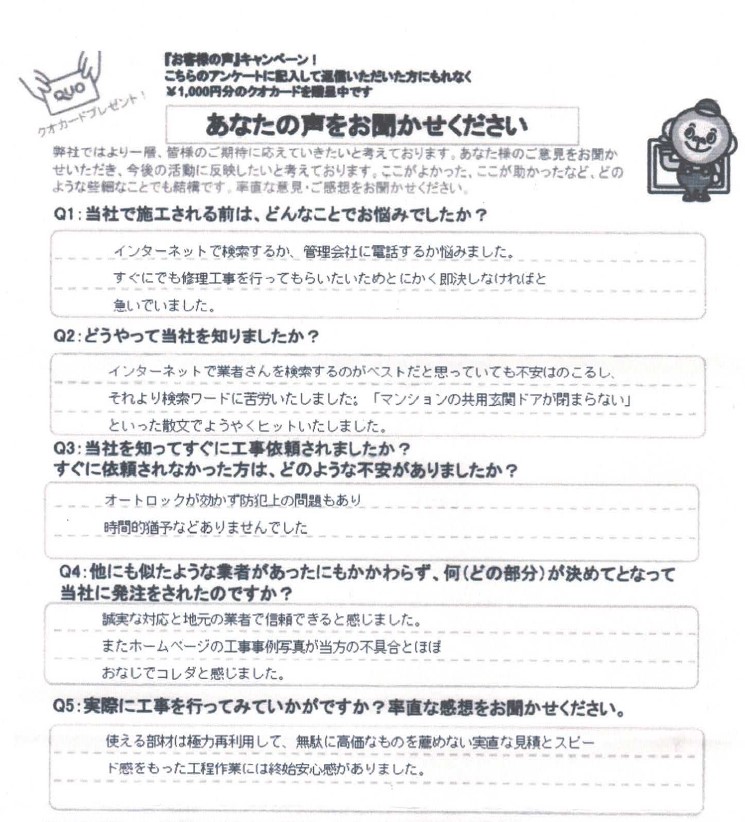 『お客様の声』キャンペーン！
こちらのアンケートに記入して返信いただいた方にもれなく
￥1,000円分のクオカードを贈呈中です
QUO
クオカードプレゼント！
あなたの声をお聞かせください
弊社ではより一層、皆様のご期待に応えていきたいと考えております。あなた様のご意見をお聞か
せいただき、今後の活動に反映したいと考えております。ここがよかった、ここが助かったなど、どの
ような些細なことでも結構です。率直な意見・ご感想をお聞かせください。
Q1：当社で施工される前は、どんなことでお悩みでしたか？
インターネットで検索するか、管理会社に電話するか悩みました。
すぐにでも修理工事を行ってもらいたいためとにかく即決しなければと
急いでいました。
Q2：どうやって当社を知りましたか？
インターネットで業者さんを検索するのがベストだと思っていても不安はのこるし、
それより検索ワードに苦労いたしました；「マンションの共用玄関ドアが閉まらない」
といった散文でようやくヒットいたしました。
Q3：当社を知ってすぐに工事依頼されましたか？
すぐに依頼されなかった方は、どのような不安がありましたか？
オートロックが効かず防犯上の問題もあり
時間的猶予などありませんでした
Q4：他にも似たような業者があったにもかかわらず、何（どの部分）が決めてとなって
当社に発注をされたのですか？
誠実な対応と地元の業者で信頼できると感じました。
またホームページの工事事例写真が当方の不具合とほぼ
おなじでコレダと感じました。
Q5：実際に工事を行ってみていかがですか？率直な感想をお聞かせください。
使える部材は極力再利用して、無駄に高価なものを薦めない実直な見積とスピー
ド感をもった工程作業には終始安心感がありました。